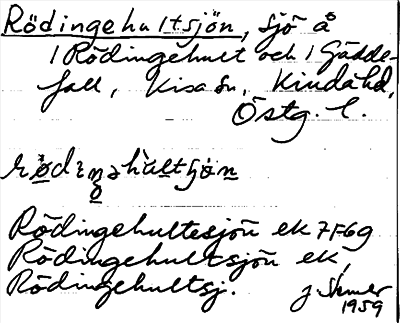 Rödingehultsjön, sjö å
i Rödingehult och i Gädde-
fall, Kisa sn, Kinda hd,
Östg. l.
Rödingehultesjön ek 7F6g
Rödingehultsjön ek
Rödingehultsj.
1959